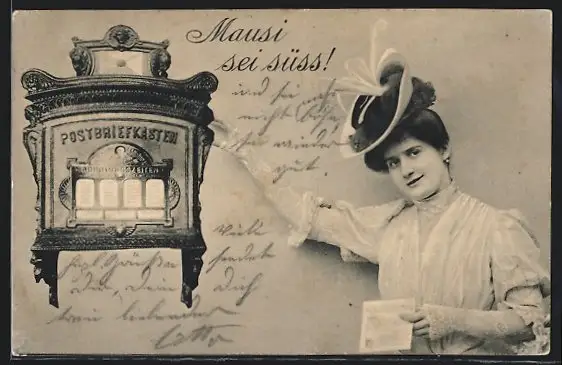 Mausi
sei süss!
und sei
nicht böse
wieder
gut.
POSTBRIEFKASTEN
Viele
Grüße sendet
Dir, Dein Dich
liebender
Otto